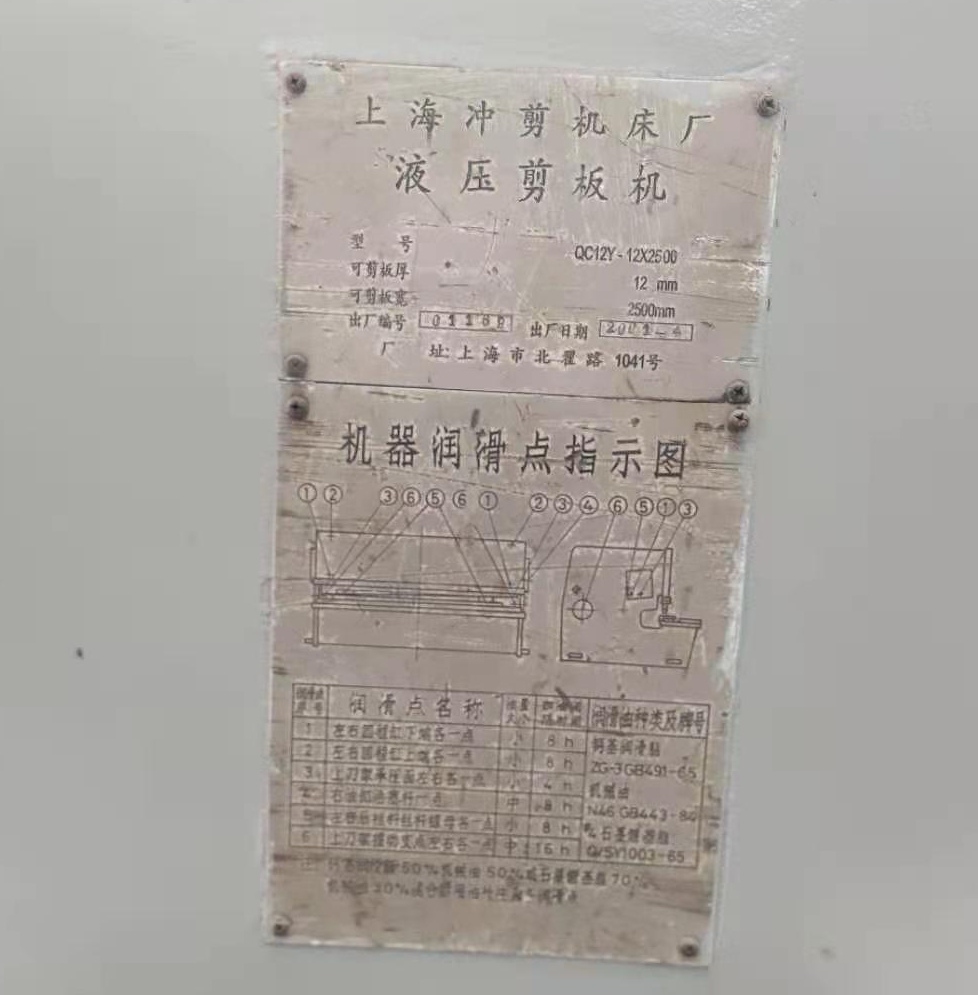 上海冲剪机床厂
液压剪板机
型号 QC12Y-12X2500
可剪板厚 12 mm
可剪板宽 2500mm
出厂编号 出厂日期 2001-4
厂 址:上海市北翟路 1041号
机器润滑点指示图
① ② ③ ⑥ ⑤ ⑥ ① ② ③ ④ ⑥ ⑤ ① ③
润滑点名称 润滑油种类及牌号
1 左右回程缸下端各一点 小 8 h
2 左右回程缸上端各一点 小 8 h
3 上刀架承压面左右各一点 小 4 h
右油缸 一点 中 8 h
左右后挡料丝杆螺母各一点 小 8 h
6 上刀架摆动支点左右各一点 中 16 h
钙基润滑脂
ZG-3 GB491-65
机械油
N46 GB443-84
石墨
Q/SY1003-65
50% 机械油 50% 70%
机械油 30% 混合